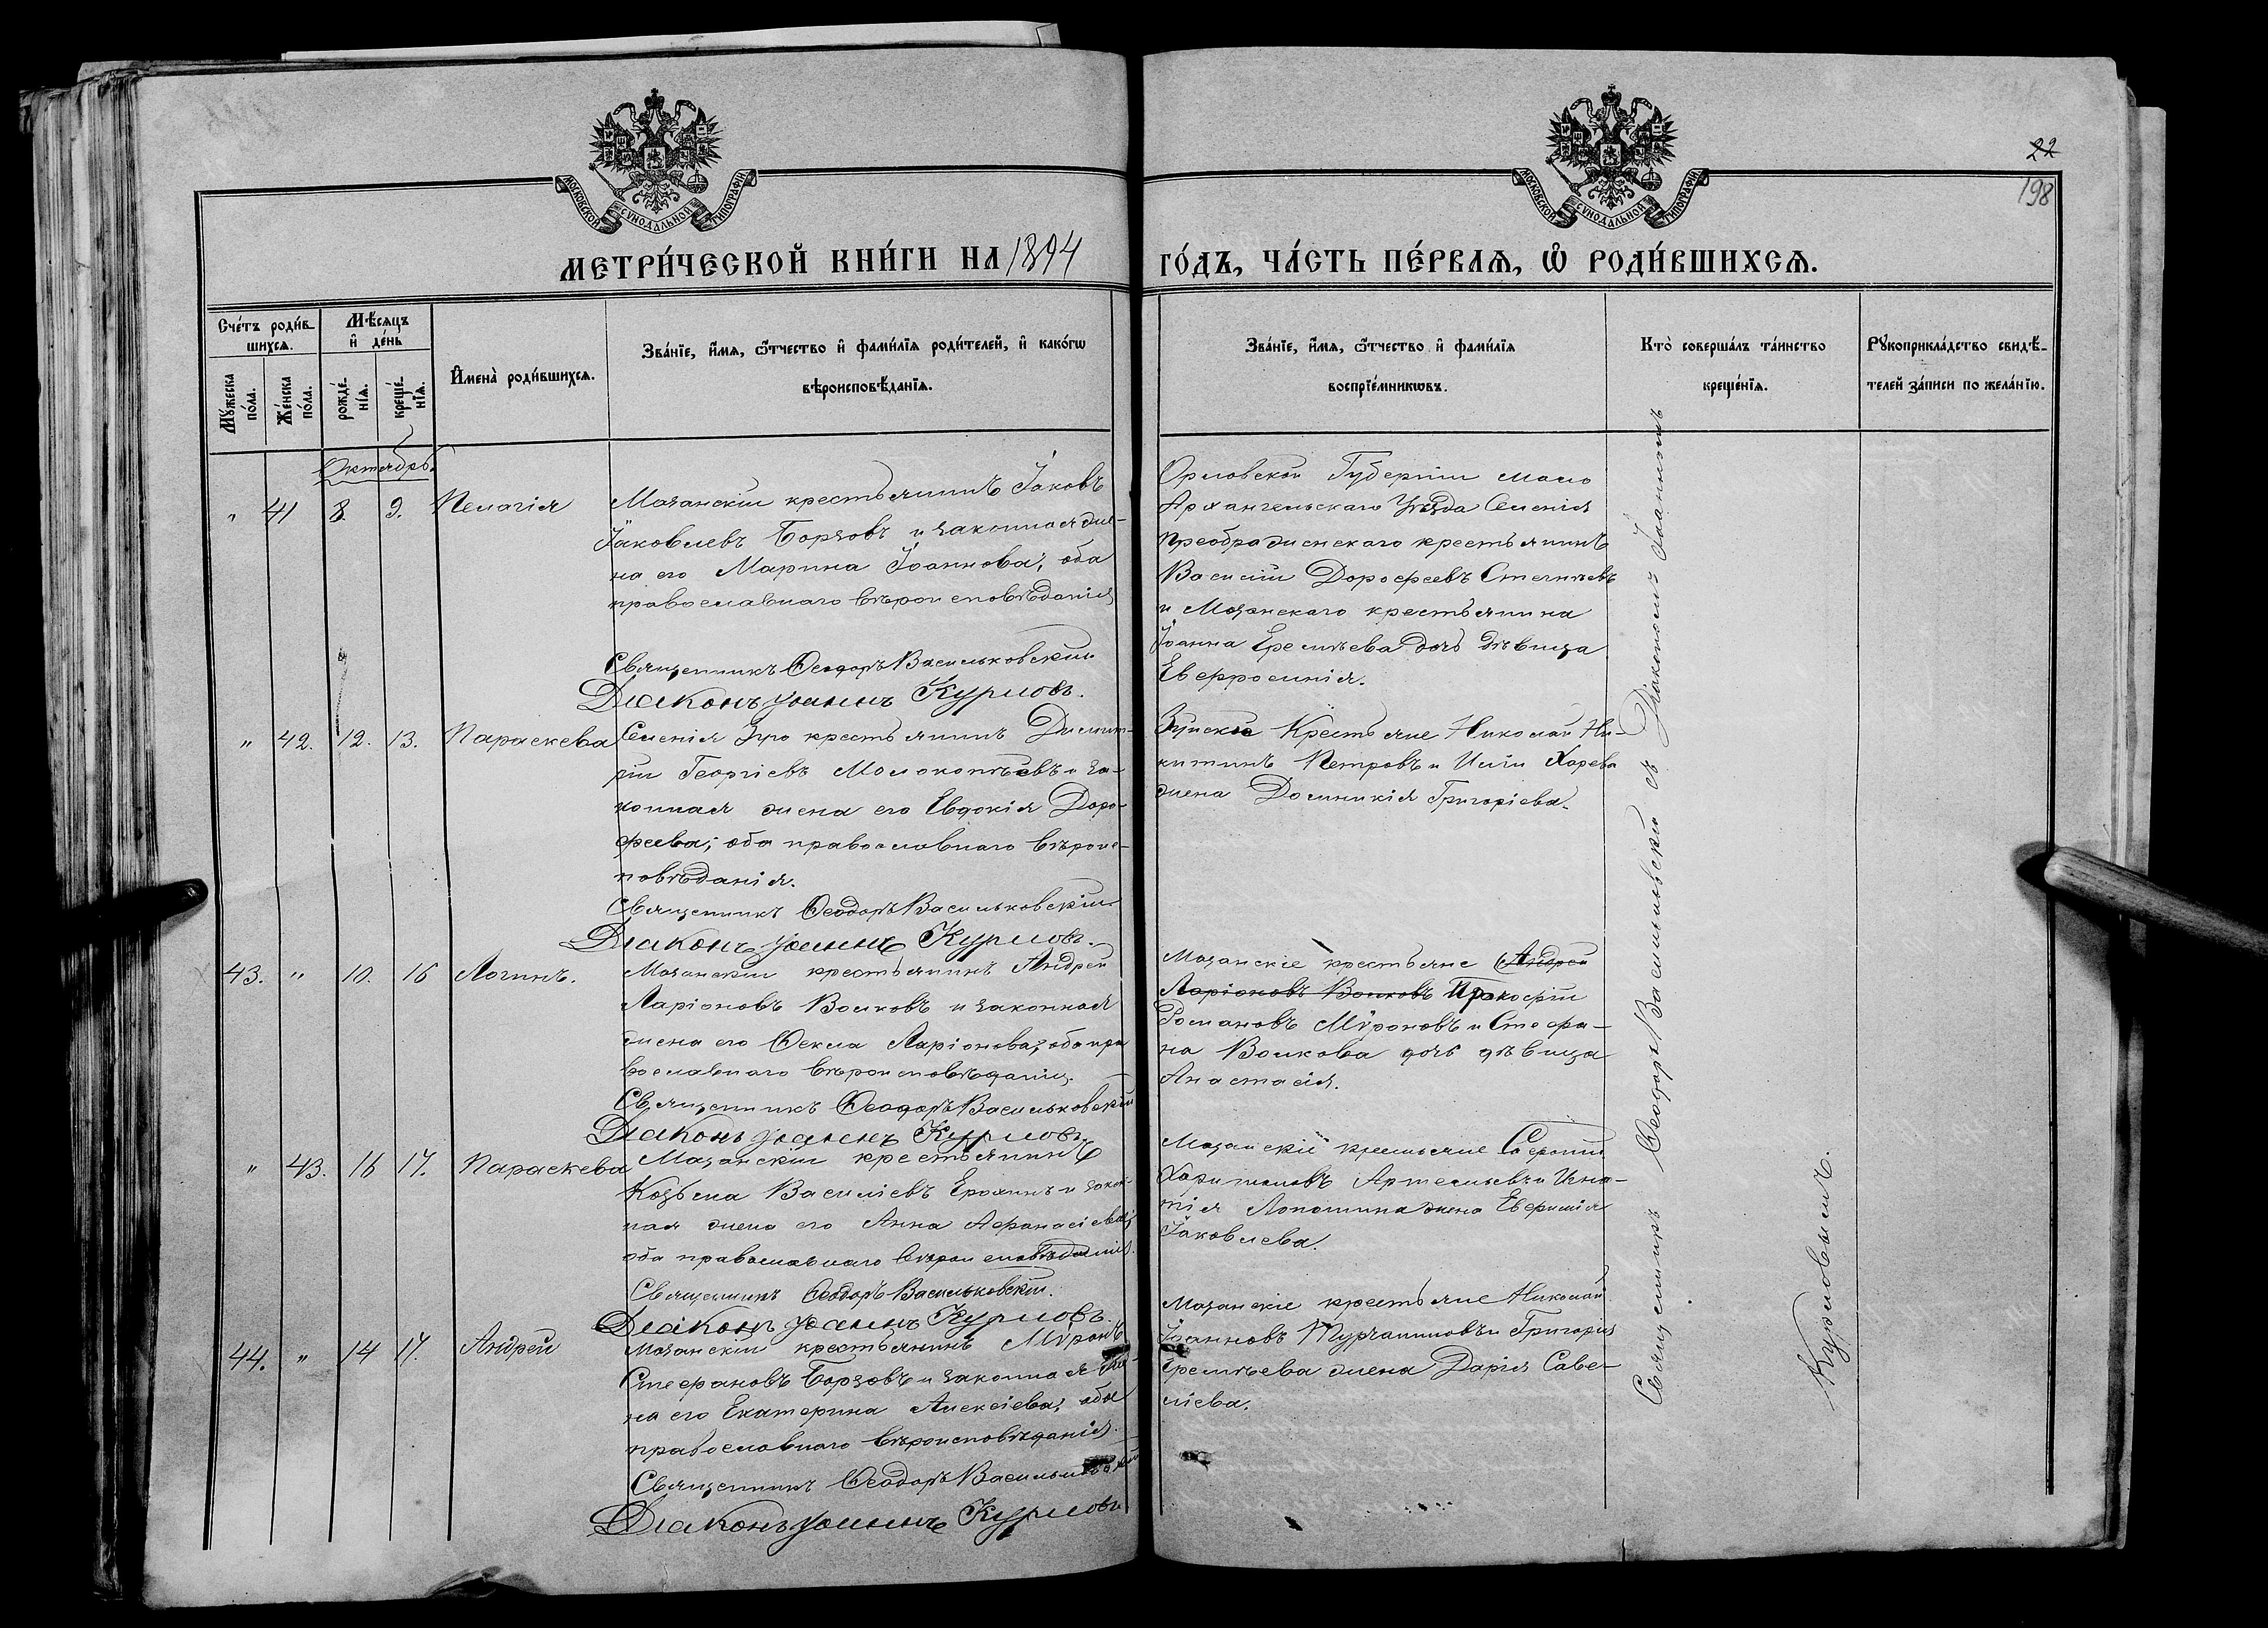 22
198
МОСКОВСКОЙ СѴНОДАЛЬНОЙ ТИПОГРАФІИ
МОСКОВСКОЙ СѴНОДАЛЬНОЙ ТИПОГРАФІИ
МЕТРИ́ЧЕСКОЙ КНИ́ГИ НА 1894
ГО́ДЪ, ЧА́СТЬ ПЕ́РВАѦ, Ѡ҆ РОДИ́ВШИХСѦ.
Сче́тъ роди́в-
шихсѧ.
Мѣ́сѧцъ
и҆ де́нь
Мꙋ́жеска
по́ла.
Же́нска
по́ла.
рожде́-
нїѧ.
креще́-
нїѧ.
И҆мена̀ роди́вшихсѧ.
Зва́нїе, и҆́мѧ, ѻ҆́тчество и҆ фами́лїѧ роди́телей, и҆ како́гѡ
вѣроисповѣ́данїѧ.
Зва́нїе, и҆́мѧ, ѻ҆́тчество и҆ фами́лїѧ
воспрїе́мникѡвъ.
Кто̀ соверша́лъ та́инство
креще́нїѧ.
Рꙋкоприкла́дство свидѣ́-
телей за́писи по жела́нїю.
Октябрь
" 41 8. 9. Пелагія
Мазанскій крестьянинъ Іаковъ
Іаковлевъ Борзовъ и законная же-
на его Марина Іоаннова; оба
православнаго вѣроисповѣданія
Священникъ Ѳеодоръ Васильковскій
Діаконъ Іоаннъ Курловъ.
Орловской Губерніи Мало
Архангельскаго Уѣзда Селенія
Преображенскаго крестьянинъ
Василій Дорофеевъ
и Мазанскаго крестьянина
Іоанна Еремѣева дочь дѣвица
Евфросинія.
" 42. 12. 13. Параскева
Селенія Зуя крестьянинъ Димит-
рій Георгіевъ и за-
конная жена его Евдокія Доро-
феева; оба православнаго вѣроис-
повѣданія.
Священникъ Ѳеодоръ Васильковскій
Діаконъ Іоаннъ Курловъ.
Зуйскіе Крестьяне Николай Ни-
китинъ Петровъ и Иліи Харева
жена Домникія Григоріева.
43. " 10. 16 Логинъ.
Мазанскій крестьянинъ Андрей
Ларіоновъ Волковъ и законная
жена его Ѳекла Ларіонова; оба пра
вославнаго вѣроисповѣданія.
Священникъ Ѳеодоръ Васильковскій
Діаконъ Іоаннъ Курловъ.
Мазанскіе крестьяне Андрей
Ларіоновъ Волковъ Прокофій
Романовъ Мѵроновъ и Стефа-
на Волкова дочь дѣвица
Анастасія.
" 43. 16 17. Параскева
Мазанскій крестьянинъ
Козьма Василіевъ Ерохинъ и закон-
ная жена его Анна Афанасіева;
оба православнаго вѣроисповѣданія.
Священникъ Ѳеодоръ Васильковскій.
Діаконъ Іоаннъ Курловъ.
Мазанскіе крестьяне
Харитоновъ Артемьевъ и Игна-
тія Лопатина жена Евфимія
Іаковлева.
44. " 14 17. Андрей
Мазанскій крестьянинъ Мѵронъ
Стефановъ Борзовъ и законная же-
на его Екатерина Алексіева; оба
православнаго вѣроисповѣданія.
Священникъ Ѳеодоръ Васильковскій
Діаконъ Іоаннъ Курловъ
Мазанскіе крестьяне Николай
Іоанновъ Турчаниновъ и Григорія
Еремѣева жена Дарія Саве-
ліева.
Священникъ Ѳеодоръ Васильковскій съ Діакономъ Іоанномъ
Курловымъ.